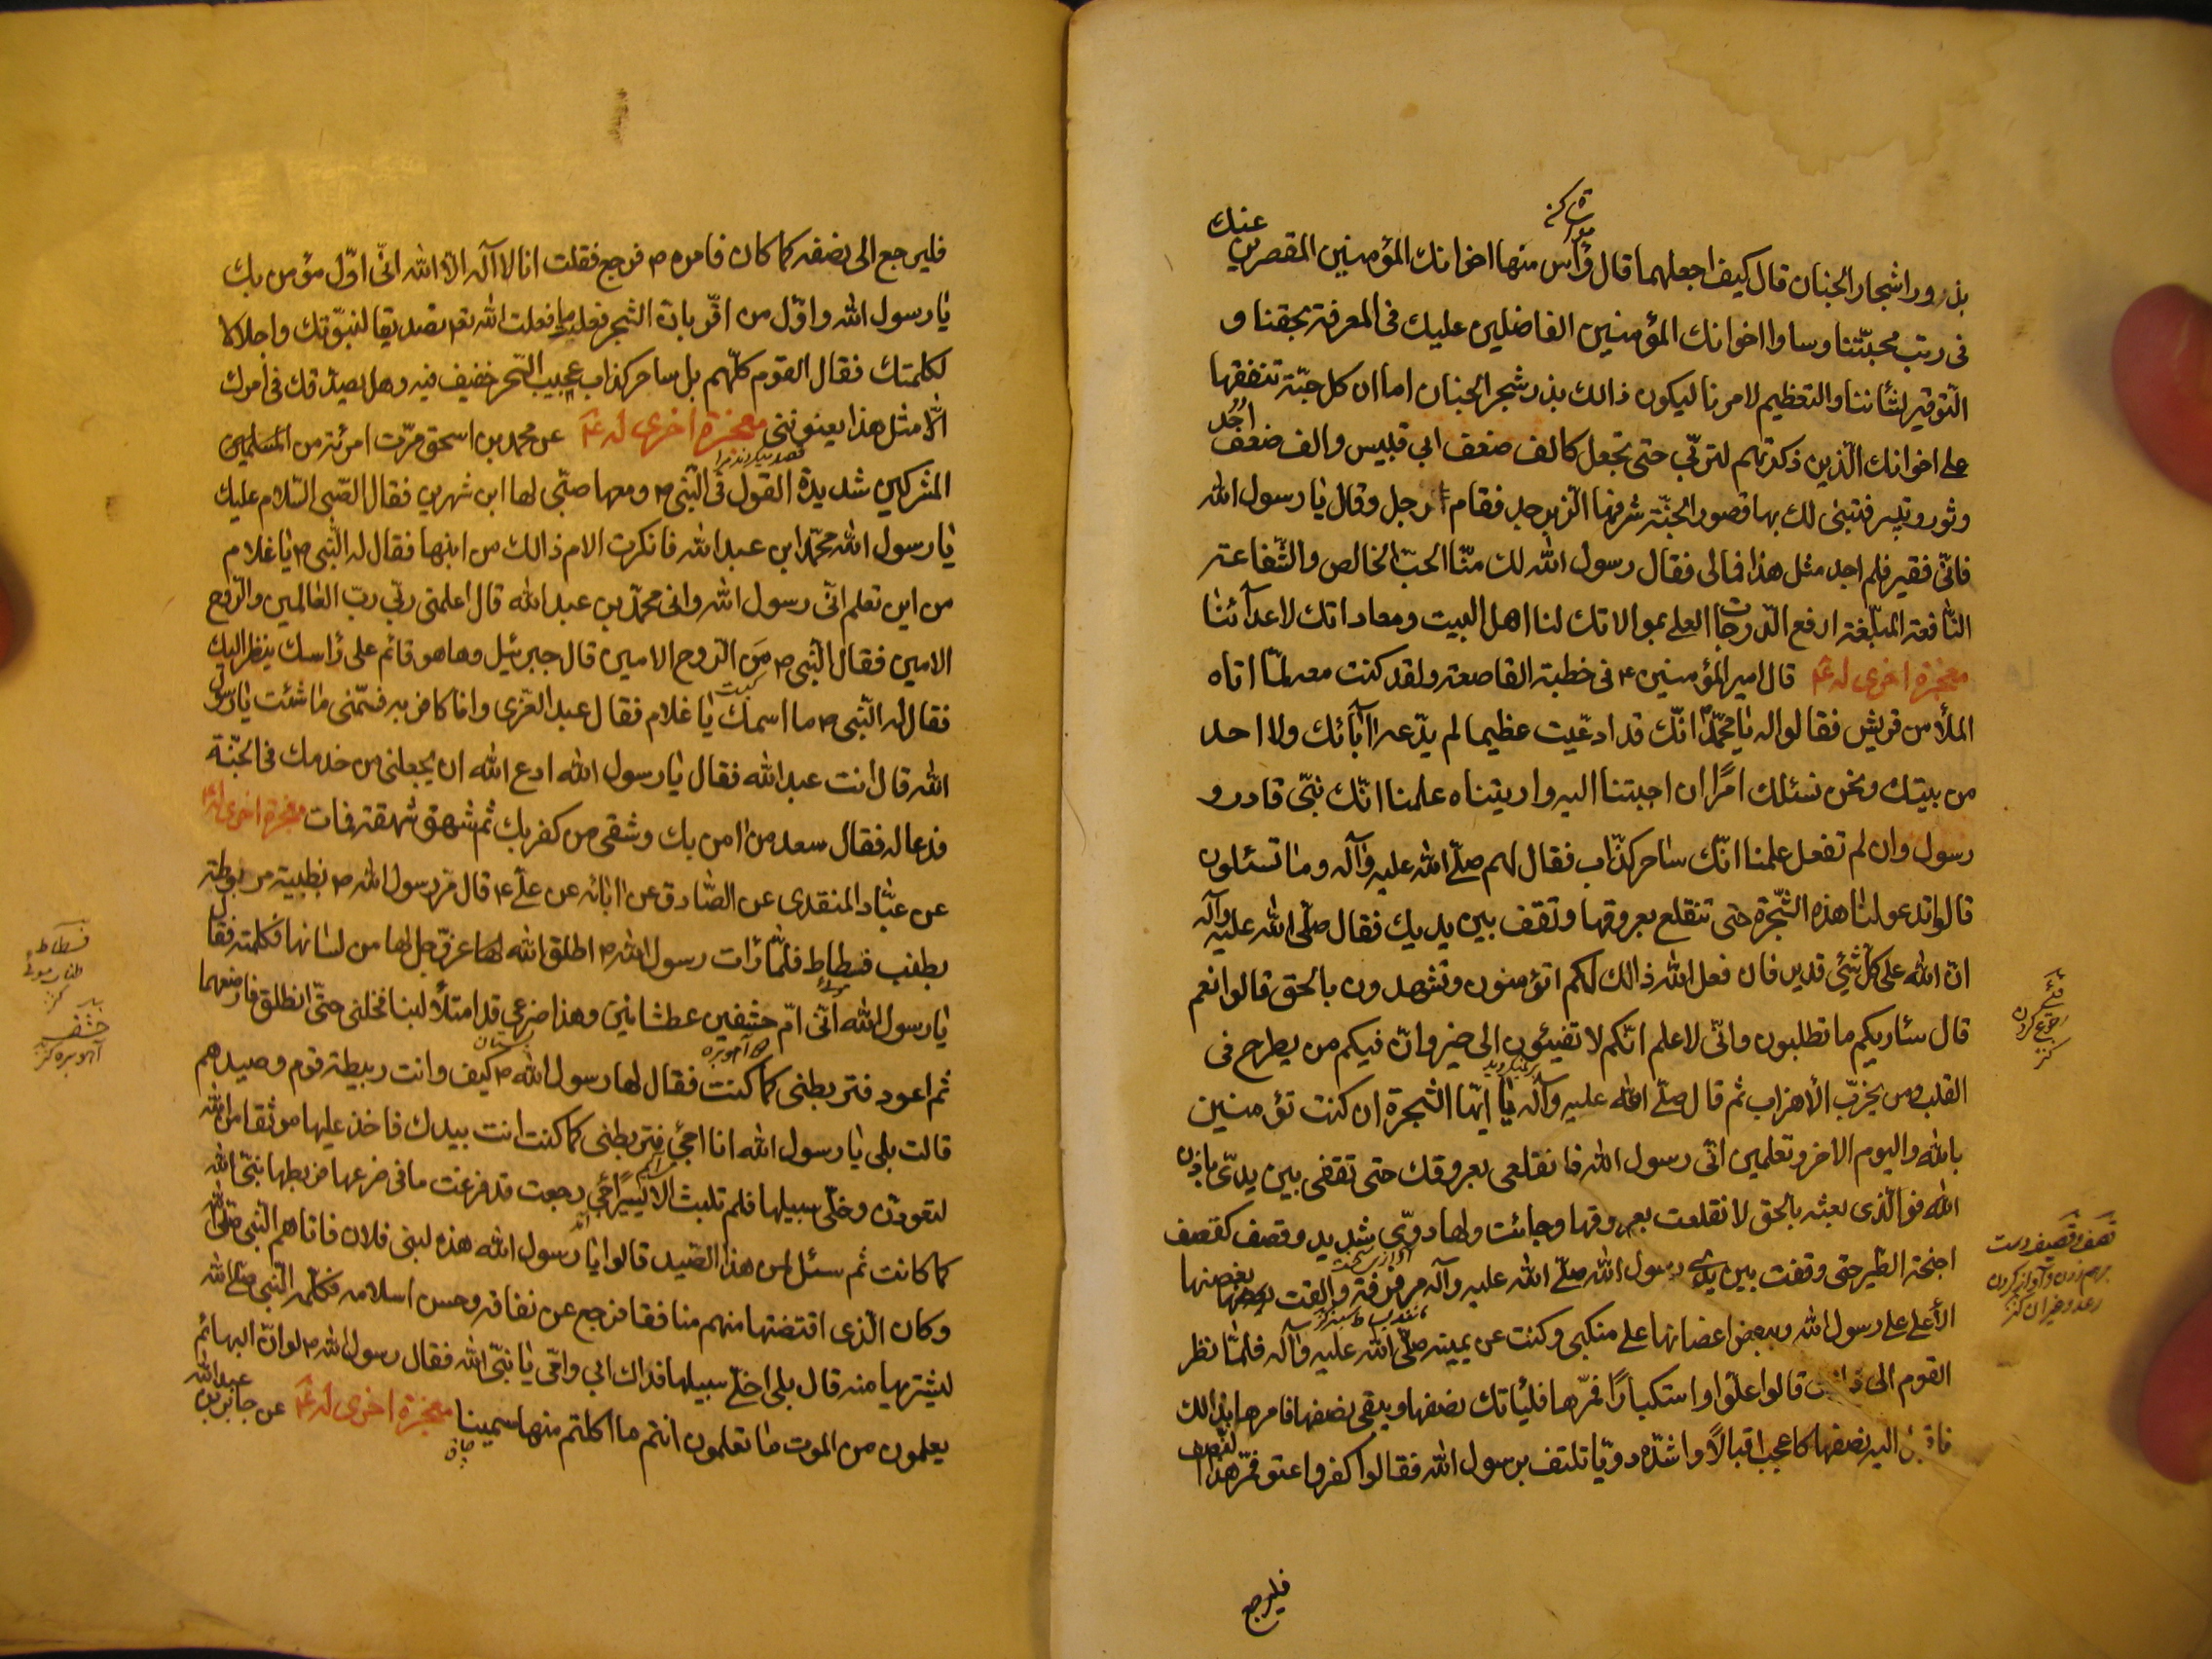 مواساة كنز
عنك
بذرور اشجار الجنان قال كيف اجعلهما قال وأس منها اخوانك المؤمنين المقصرين
فى رتب محبّتنا وساوا اخوانك المؤمنين الفاضلين عليك فى المعرفة بحقنا و
التوقير لشأننا والتعظيم لامرنا ليكون ذالك بذر شجر الجنان اما ان كل حبّة تنفقها
على اخوانك الّذين ذكرتهم لتربّى حتى تجعل كالف ضعف ابى قبيس والف ضعف احد
وثور وثبير فتبنى لك بها قصور الجنّة شرفها الزبرجد فقام الرجل وقال يا رسول الله
فانّى فقير فلم اجد مثل هذا فمالى فقال رسول الله لك منّا الحبّ الخالص والشّفاعة
النّافعة المبلّغة ارفع الدّرجات العلى بموالاتك لنا اهل البيت ومعاداتك لاعدآئنا
معجزة اخرى له ع قال امير المؤمنين ع فى خطبة القاصعة ولقد كنت معه لمّا اتاه
الملأ من قريش فقالوا له يا محمّد انّك قد ادعّيت عظيما لم يدّعه اآبائك ولا احد
من بيتك ونحن نسئلك امرًا ان اجبتنا اليه واريتناه علمنا انّك نبىّ قادر و
رسول وان لم تفعل علمنا انّك ساحر كذّاب فقال لهم صلّى الله عليه وآله وما تسئلون
قالوا تدعو لنا هذه الشّجرة حتى تنقلع بعروقها وتقف بين يديك فقال صلّى الله عليه وآله
انّ الله على كلّ شئي قدير فان فعل الله ذالك لكم اتؤمنون وتشهدون بالحق قالوا نعم
قال ساريكم ما تطلبون وانّى لاعلم انّكم لا تفيئون الى خير وانّ فيكم من يطرح فى
القليب ومن يحزّب الأحزاب ثم قال صلّى الله عليه وآله يا ايتّها الشجرة ان كنت تؤمنين
بالله واليوم الاخر وتعلمين انّى رسول الله فانقلعى بعروقك حتى تقفى بين يدىّ باذن
الله فوالّذى بعثه بالحق لانقلعت بعروقها وجائت ولها دوىّ شديد وقصف كقصف
اجنحة الطّير حتى وقفت بين يدى رسول الله صلّى الله عليه وآله مرفرفة والقت بغصنها
الأعلى على رسول الله وببعض اعضانها على منكبى وكنت عن يمينه صلّى الله عليه وآله فلمّا نظر
القوم الى ذالك قالوا علوّا واستكبارًا فمرها فليأتك نصفها ويبقى نصفها فامرها بذالك
فاقبل اليه نصفها كاعجب اقبالاً واشدّه دويّا تلتف برسول الله فقالوا كفرا وعتوا فمر هذا النصف
فليرجع
فئ
رجوع كردن
كنز
قصف وقصيف
كنز
فليرجع الى نصفه كما كان فامره ص فرجع فقلت انا لا آله الاّ الله انّى اوّل مؤمن بك
يا رسول الله واوّل من اقّر بانّ الشجر فعلت ما فعلت بامر الله تع تصديقا لنبوّتك واجلالا
لكلمتك فقال القوم كلّهم بل ساحر كذاب عجيب السّحر خفيف فيه وهل يصدّقك فى امرك
الاّ مثل هذا يعنوننى معجزة اخرى له ع عن محمد بن اسحق مرّت امرئة من المسلمين
المشركين شديدة القول فى النّبى ص ومعها صبّى لها ابن شهرين فقال الصّبى السّلام عليك
يا رسول الله محمّد ابن عبدالله فانكرت الام ذالك من ابنها فقال له النّبى ص يا غلام
من اين تعلم انّى رسول الله وانى محمّد بن عبدالله قال اعلمنى ربّى ربّ العالمين والرّوح
الامين فقال النّبى ص من الرّوح الامين قال جبرئيل وها هو قائم على رأسك ينظر اليك
فقال له النّبى ص ما اسمك يا غلام فقال عبد العزّى وانا كافر به فسمّنى ما شئت يا رسول
الله قال انت عبدالله فقال يا رسول الله ادع الله ان يجعلنى من خدمك فى الجنّة
فدعا له فقال سعد من امن بك وشقى من كفر بك ثم شهق شهقة فمات معجزة اخرى له ع
عن عبّاد المنقدى عن الصّادق عن ابائه عن علىّ ع قال مرّ رسول الله ص بظبية مربوطة
بطنب فسطاط فلمّا رأت رسول الله ص اطلق الله لها عزّ وجل لها من لسانها فكلمته فقالت
يا رسول الله انّى امّ خشفين عطشانين وهذا ضرعى قد امتلأ لبنا فخلنى حتّى انطلق فارضعهما
ثم اعود فتربطنى كما كنت فقال لها رسول الله ص كيف وانت ربيطة قوم وصيدهم
قالت بلى يا رسول الله انا اجئ فتربطنى كما كنت انت بيدك فاخذ عليها موثقا من الله
لتعودّن وخلّى سبيلها فلم تلبث الا يسيرًا حتى رجعت قد فرغت ما فى ضرعها فربطها نبىّ الله
كما كانت ثم سئل لمن هذا الصّيد قالوا يا رسول الله هذه لبنى فلان فاتاهم النّبى صلّى الله
وكان الّذى اقتنصها منهم منافقا فرجع عن نفاقه وحسن اسلامه فكلّمه النّبى صلى الله
ليشتريها منه قال بلى اخلّى سبيلها فداك ابى وامّى يا نبىّ الله فقال رسول الله ص لو انّ البهائم
يعلمون من الموت ما تعلمون انتم ما اكلتم منها سمينا معجزة اخرى له ع عن جابر بن عبدالله
فسطاط
كنز
خشف
آهو بره كنز